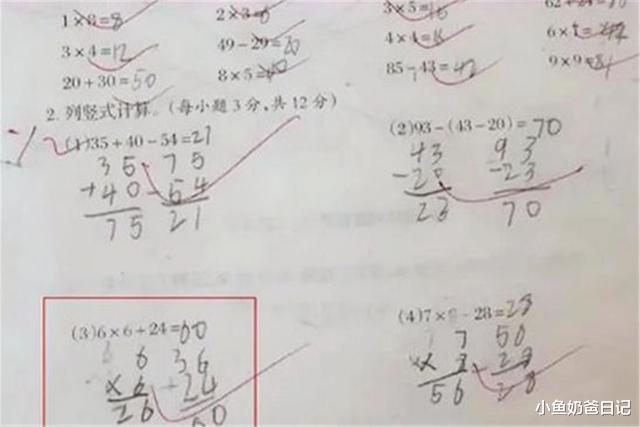 1×8=8 2×3=6 3×5=15
3×4=12 49-29=20 4×4=16
20+30=50 8×5=40 85-43=42 9×9=81
2.列竖式计算。(每小题3分,共12分)
(1)35+40-54=21 (2)93-(43-20)=70
35 75 43 93
+40 -54 -20 -23
75 21 23 70
(3)6×6+24=60 (4)7×8-28=28
6 36 7
×6 +24
26 60 56 28
小鱼奶爸日记